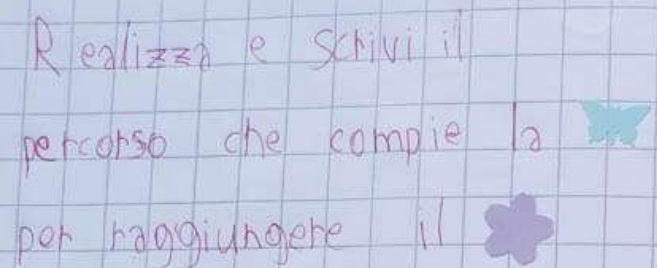 Realizza e scrivi il
percorso che compie la
per raggiungere il